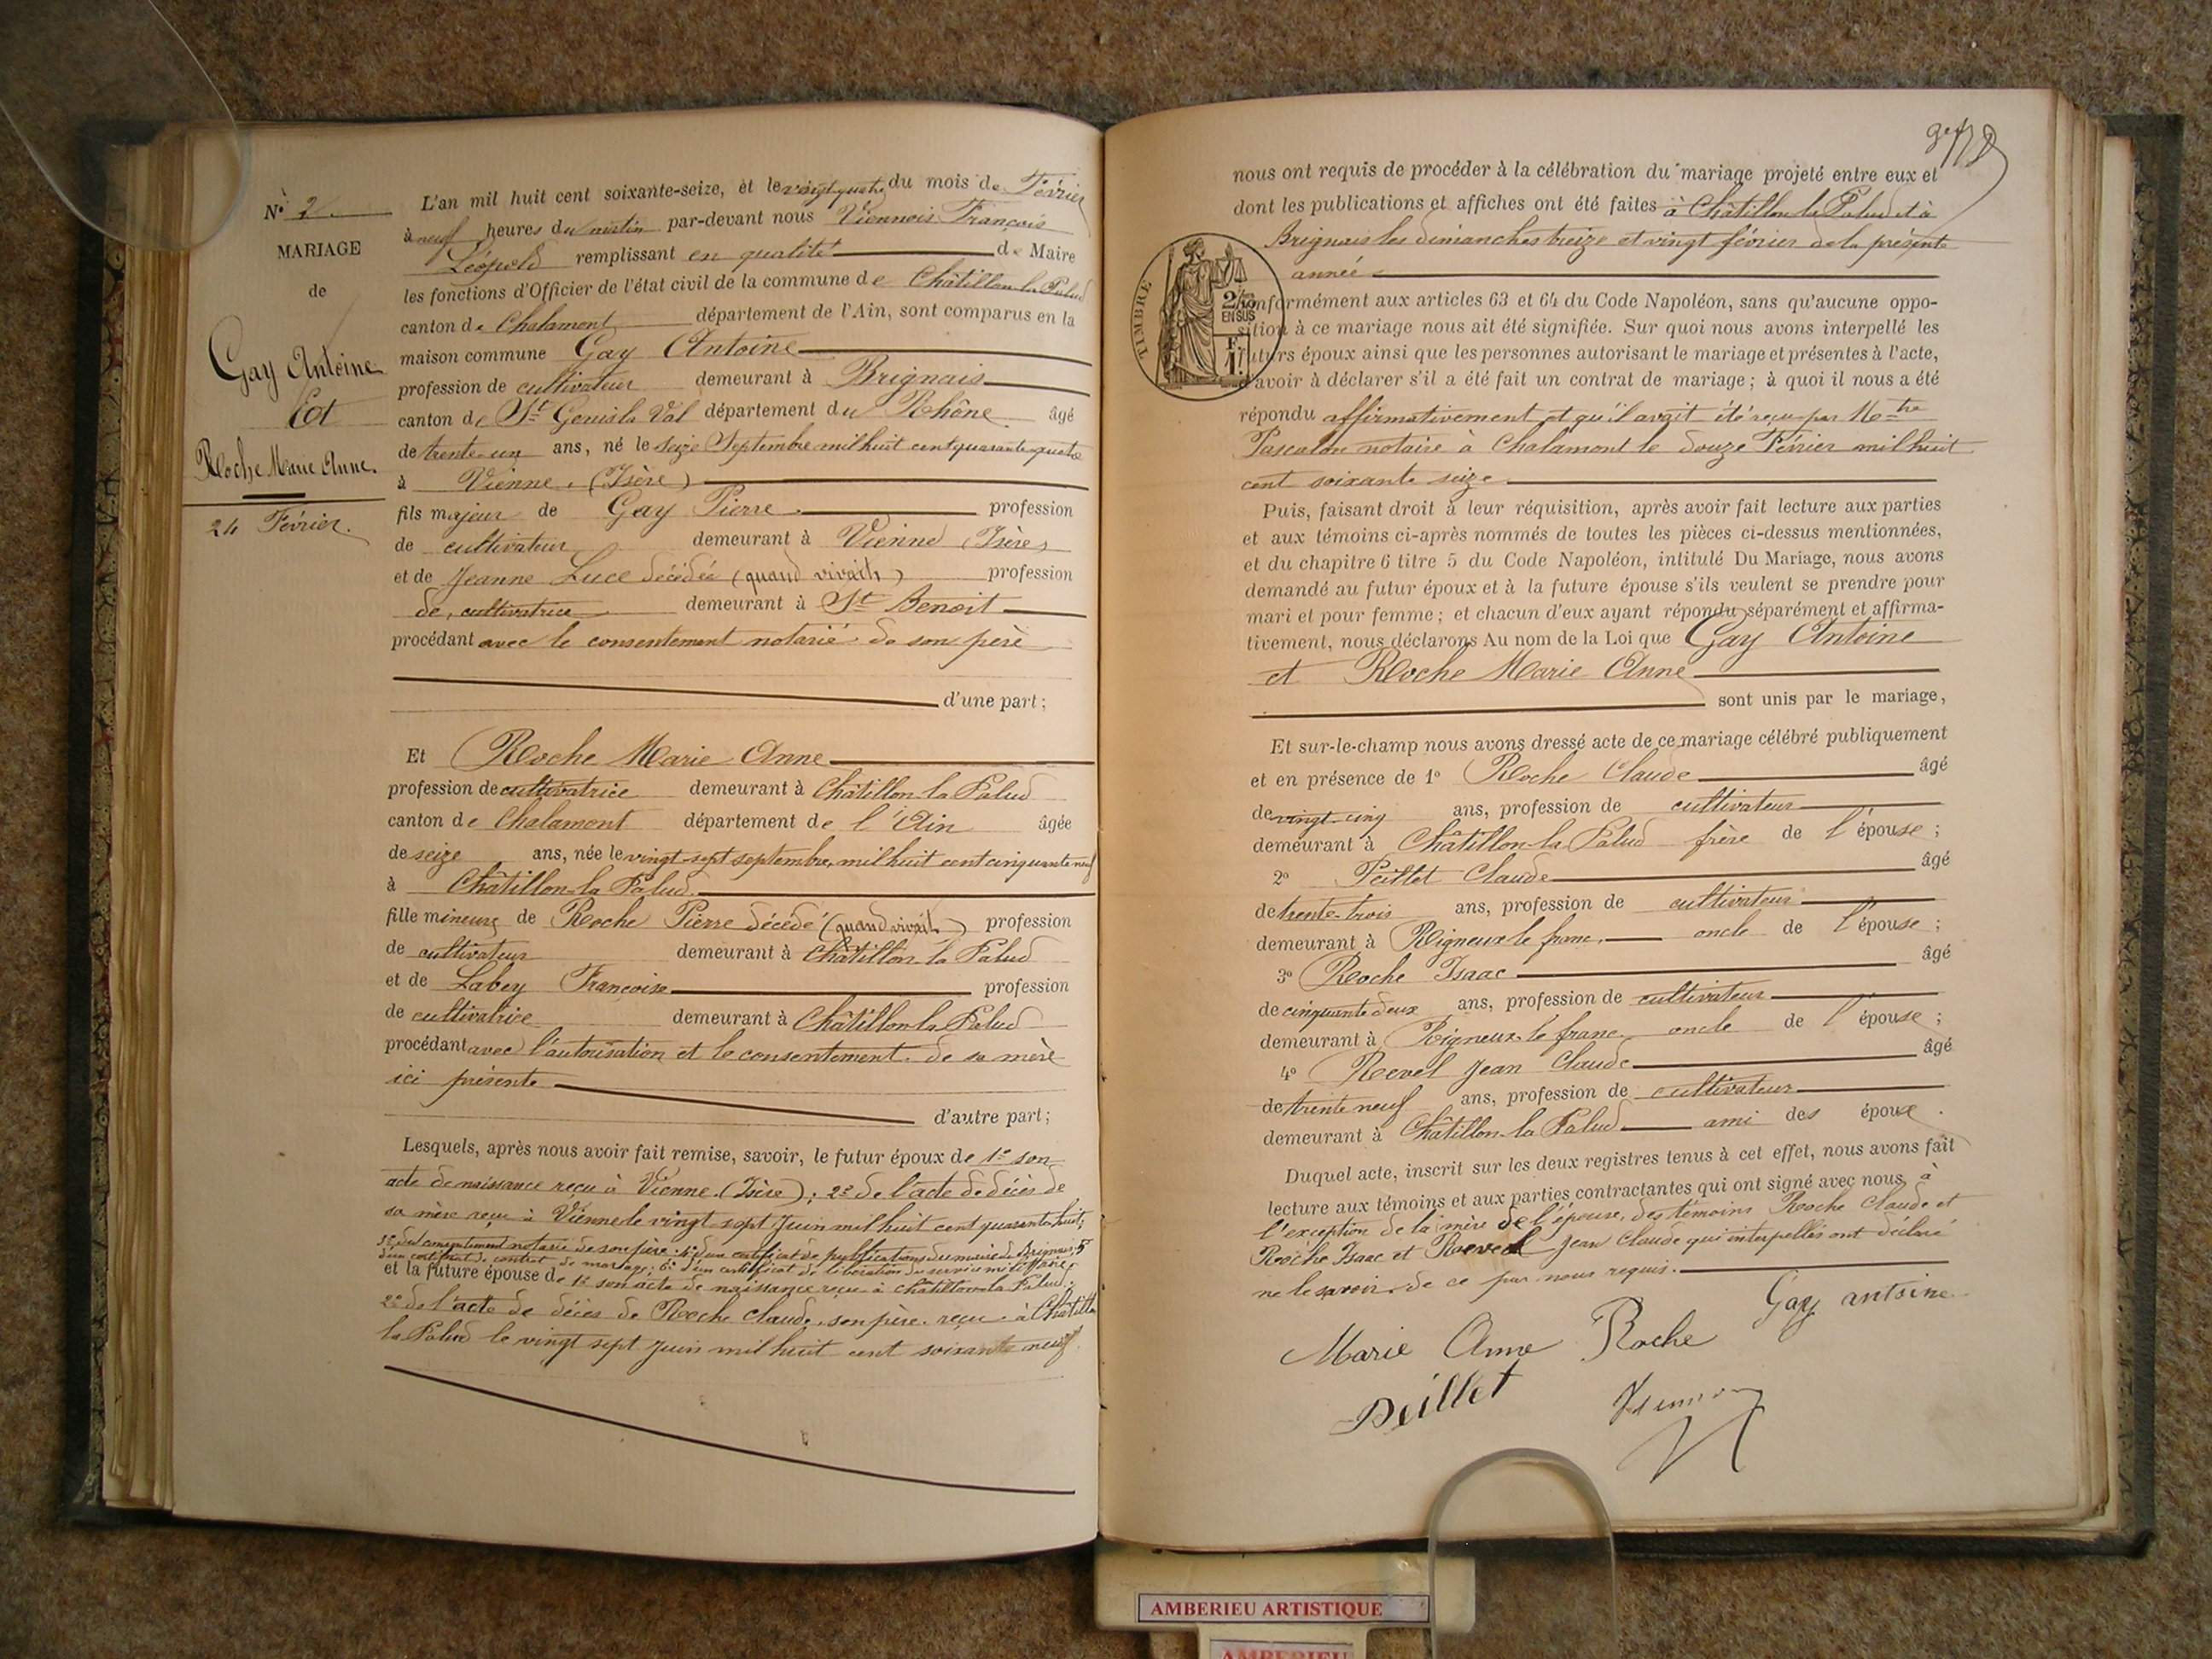 N° 2
MARIAGE
de
Gay Antoine
Et
Roche Marie Anne.
24 Février.
L'an mil huit cent soixante-seize, et le vingt quatre du mois de Février
à neuf heures du matin par-devant nous Viennois François
Léopold remplissant en qualité de Maire
les fonctions d'Officier de l'état civil de la commune de Châtillon la Palud
canton de Chalamont département de l'Ain, sont comparus en la
maison commune Gay Antoine
profession de cultivateur demeurant à Brignais
canton de St Genis la Val département du Rhône âgé
de trente un ans, né le seize Septembre mil huit cent quarante quatre
à Vienne. (Isère)
fils majeur de Gay Pierre profession
de cultivateur demeurant à Vienne (Isère)
et de Jeanne Luce décédée (quand vivait) profession
de cultivatrice demeurant à St Benoit
procédant avec le consentement notarié de son père
d'une part;
Et Roche Marie Anne
profession de cultivatrice demeurant à Châtillon la Palud
canton de Chalamont département de l'Ain âgée
de seize ans, née le vingt-sept septembre, mil huit cent cinquante neuf
à Châtillon-la Palud
fille mineure de Roche Pierre décédé (quand vivait) profession
de cultivateur demeurant à Châtillon la Palud
et de Labey Françoise profession
de cultivatrice demeurant à Châtillon la Palud
procédant avec l'autorisation et le consentement de sa mère
ici présente
d'autre part;
Lesquels, après nous avoir fait remise, savoir, le futur époux de 1° son
acte de naissance reçu à Vienne. (Isère); 2° de l'acte de décès de
sa mère reçu à Vienne le vingt sept Juin mil huit cent quarante huit;
3° du consentement notarié de son père; 4° d'un certificat de publications du maire de Brignais; 5°
d'un certificat de contrat de mariage; 6° d'un certificat de libération du service militaire;
et la future épouse de 1° son acte de naissance reçu à Châtillon la Palud;
2° de l'acte de décès de Roche Claude, son père reçu à Châtillon
la Palud le vingt sept Juin mil huit cent soixante neuf.
nous ont requis de procéder à la célébration du mariage projeté entre eux et
dont les publications et affiches ont été faites à Châtillon la Palud et à
Brignais les dimanches treize et vingt février de la présente
année
TIMBRE
2/10
EN SUS
F
1.
conformément aux articles 63 et 64 du Code Napoléon, sans qu'aucune oppo-
sition à ce mariage nous ait été signifiée. Sur quoi nous avons interpellé les
futurs époux ainsi que les personnes autorisant le mariage et présentes à l'acte,
d'avoir à déclarer s'il a été fait un contrat de mariage; à quoi il nous a été
répondu affirmativement et qu'il avait été reçu par Mtre
Pascalon notaire à Chalamont le douze Février mil huit
cent soixante seize
Puis, faisant droit à leur réquisition, après avoir fait lecture aux parties
et aux témoins ci-après nommés de toutes les pièces ci-dessus mentionnées,
et du chapitre 6 titre 5 du Code Napoléon, intitulé Du Mariage, nous avons
demandé au futur époux et à la future épouse s'ils veulent se prendre pour
mari et pour femme; et chacun d'eux ayant répondu séparément et affirma-
tivement, nous déclarons Au nom de la Loi que Gay Antoine
et Roche Marie Anne
sont unis par le mariage,
Et sur-le-champ nous avons dressé acte de ce mariage célébré publiquement
et en présence de 1° Roche Claude âgé
de vingt-cinq ans, profession de cultivateur
demeurant à Châtillon-la Palud frère de l'épouse;
2° Peillet Claude âgé
de trente-trois ans, profession de cultivateur
demeurant à Rigneux le franc, oncle de l'épouse;
3° Roche Isaac âgé
de cinquante deux ans, profession de cultivateur
demeurant à Rigneux-le franc oncle de l'épouse;
4° Revel Jean Claude âgé
de trente neuf ans, profession de cultivateur
demeurant à Châtillon-la Palud ami des époux.
Duquel acte, inscrit sur les deux registres tenus à cet effet, nous avons fait
lecture aux témoins et aux parties contractantes qui ont signé avec nous, à
l'exception de la mère de l'épouse, des témoins Roche Claude et
Roche Isaac et Revel Jean Claude qui interpellés ont déclaré
ne le savoir, de ce par nous requis.
Gay antoine
Marie Anne Roche
Peillet
AMBERIEU ARTISTIQUE
AMBERIEU